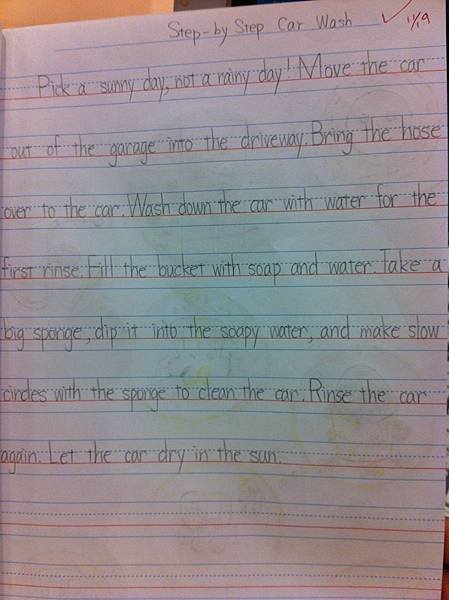 Step-by Step Car Wash ✓ 11/19
Pick a sunny day, not a rainy day! Move the car
out of the garage into the driveway. Bring the hose
over to the car. Wash down the car with water for the
first rinse. Fill the bucket with soap and water. Take a
big sponge, dip it into the soapy water, and make slow
circles with the sponge to clean the car. Rinse the car
again. Let the car dry in the sun.